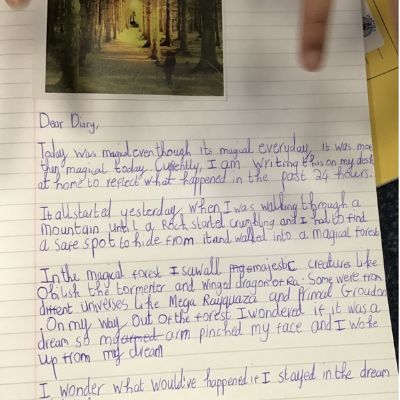 Dear Diary,
Today was magical even though its magical everyday, it was more
then magical today. Currently, I am writing this on my desk
at home to reflect what happened in the past 24 hours.
It all started yesterday, when I was walking through a
mountain until a Rock started crumbling and I had to find
a safe spot to hide from it and walked into a magical forest
In the magical forest I saw all majestic creatures like
Oblisk the tormentor and winged dragon of Ra. Some were from
diffrent universes like Mega Rayquaza and Primal Groudon
. On my way out of the forest I wondered if it was a
dream so my armed arm pinched my face and I woke
up from my dream
I wonder what would've happened if I stayed in the dream